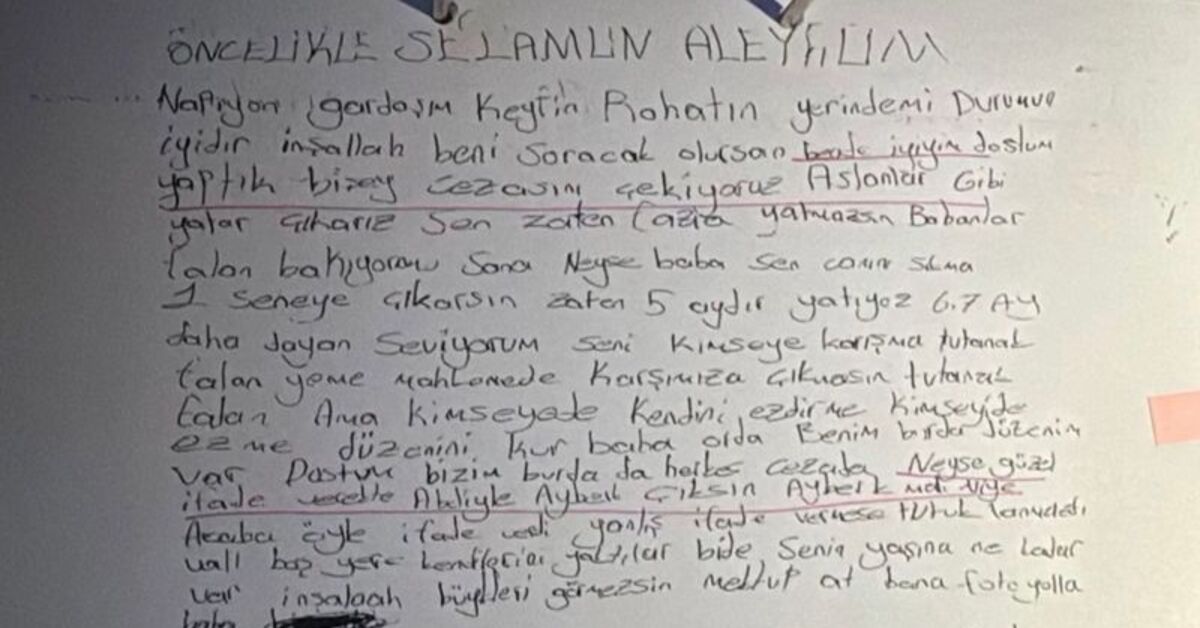 ÖNCELİKLE SELAMUN ALEYHLIM
Napıyon gardaşım Keyfin Rahatın yerindemi Durumun
iyidir inşallah beni soracak olursan bende iyiyim dostum
yaptık bizey cezasını çekiyoruz Aslanlar Gibi
yatar çıkarız Sen zaten fazla yatmazsın Babanlar
falan bakıyorow Sana Neyse baba sen canını sıkma
1 seneye çıkarsın zaten 5 aydır yatıyoz 6.7 AY
daha dayan Seviyorum seni Kimseye karışma tutanak
falan yeme mahkemede Karşımıza çıkmasın tutanak
falan Ama Kimseyede Kendini ezdirme Kimseyide
ezme düzenini kur baba orda Benim burda düzenim
var Dostum bizim burda da herkes cezada Neyse güzel
ifade Abiliyle Ayberk Çıksın Ayberk niye
Acaba öyle ifade verdi yanlış ifade vermese tutuklanmazdı
vall boş yere yattılar bide Senin yaşına ne kadar
var inşalaah böyleleri görmezsin mektup at bana foto yolla
baba